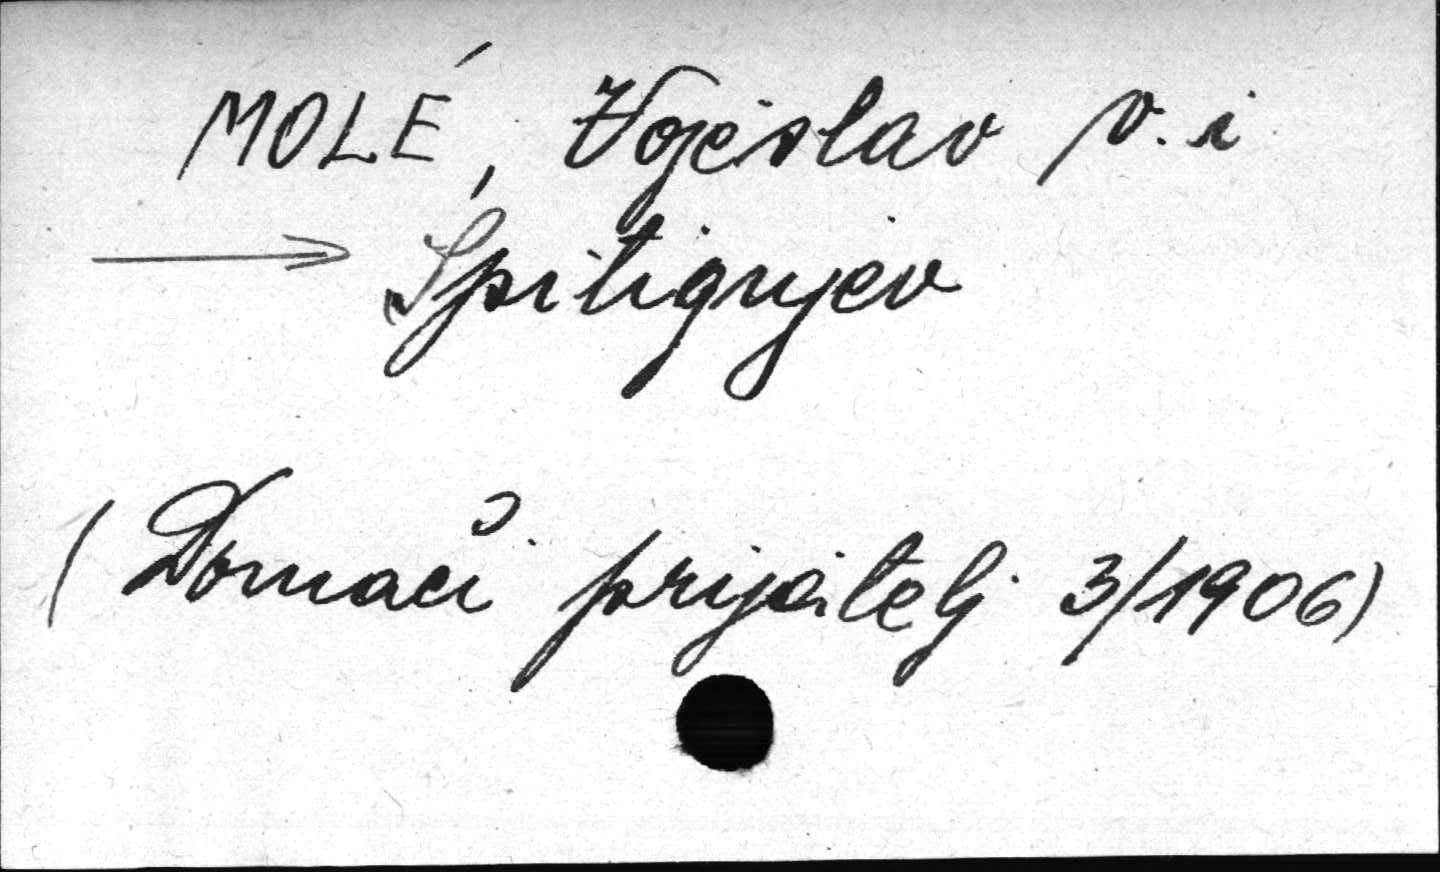 MOLÉ, Vojeslav v. i
→ Spitignjev
(Domači prijatelj 3/1906)